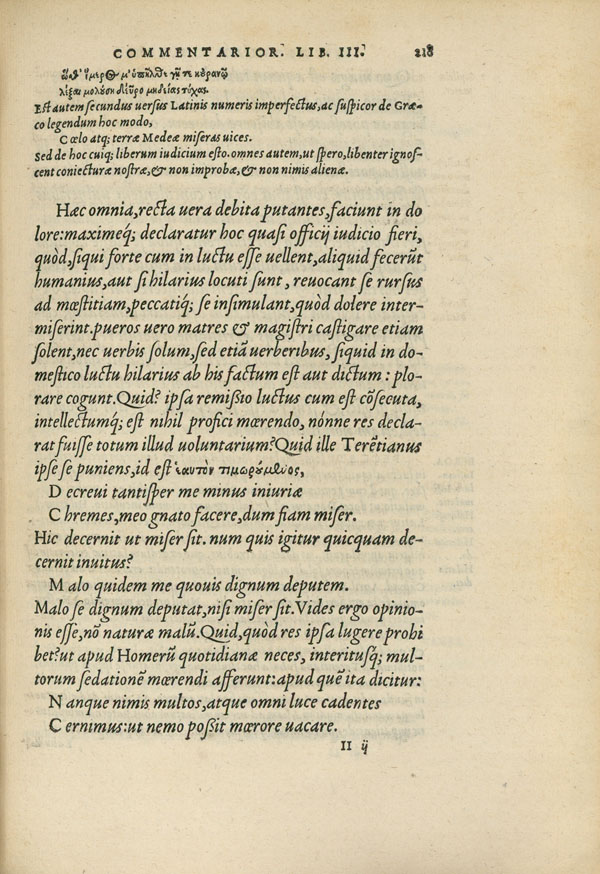 COMMENTARIOR. LIB. III. 218
ὥσθ' ἵμερός μ' ὑπῆλθε γῆ τε κ' οὐρανῷ
λέξαι μολούσῃ δεῦρο μηδείας τύχας.
Est autem secundus uersus Latinis numeris imperfectus, ac suspicor de Græ-
co legendum hoc modo,
Cœlo atq; terræ Medeæ miseras uices.
Sed de hoc cuiq; liberum iudicium esto. omnes autem, ut spero, libenter ignos-
cent coniecturæ nostræ, & non improbæ, & non nimis alienæ.
Hæc omnia, recta uera debita putantes, faciunt in do
lore: maximeq́; declaratur hoc quasi officij iudicio fieri,
quòd, siqui forte cum in luctu esse uellent, aliquid fecerũt
humanius, aut si hilarius locuti sunt, reuocant se rursus
ad mœstitiam, peccatiq́; se insimulant, quòd dolere inter-
miserint. pueros uero matres & magistri castigare etiam
solent, nec uerbis solum, sed etiã uerberibus, siquid in do-
mestico luctu hilarius ab his factum est aut dictum: plo-
rare cogunt. Quid? ipsa remißio luctus cum est cõsecuta,
intellectumq́; est nihil profici mœrendo, nónne res decla-
rat fuisse totum illud uoluntarium? Quid ille Terẽtianus
ipse se puniens, id est ἑαυτὸν τιμωρούμενος,
Decreui tantisper me minus iniuriæ
Chremes, meo gnato facere, dum fiam miser.
Hic decernit ut miser sit. num quis igitur quicquam de-
cernit inuitus?
Malo quidem me quouis dignum deputem.
Malo se dignum deputat, nisi miser sit. Vides ergo opinio-
nis esse, nõ naturæ malũ. Quid, quòd res ipsa lugere prohi
bet? ut apud Homerũ quotidianæ neces, interitusq́; mul-
torum sedationẽ mœrendi afferunt: apud quẽ ita dicitur:
Nanque nimis multos, atque omni luce cadentes
Cernimus: ut nemo poßit mœrore uacare.
II ij